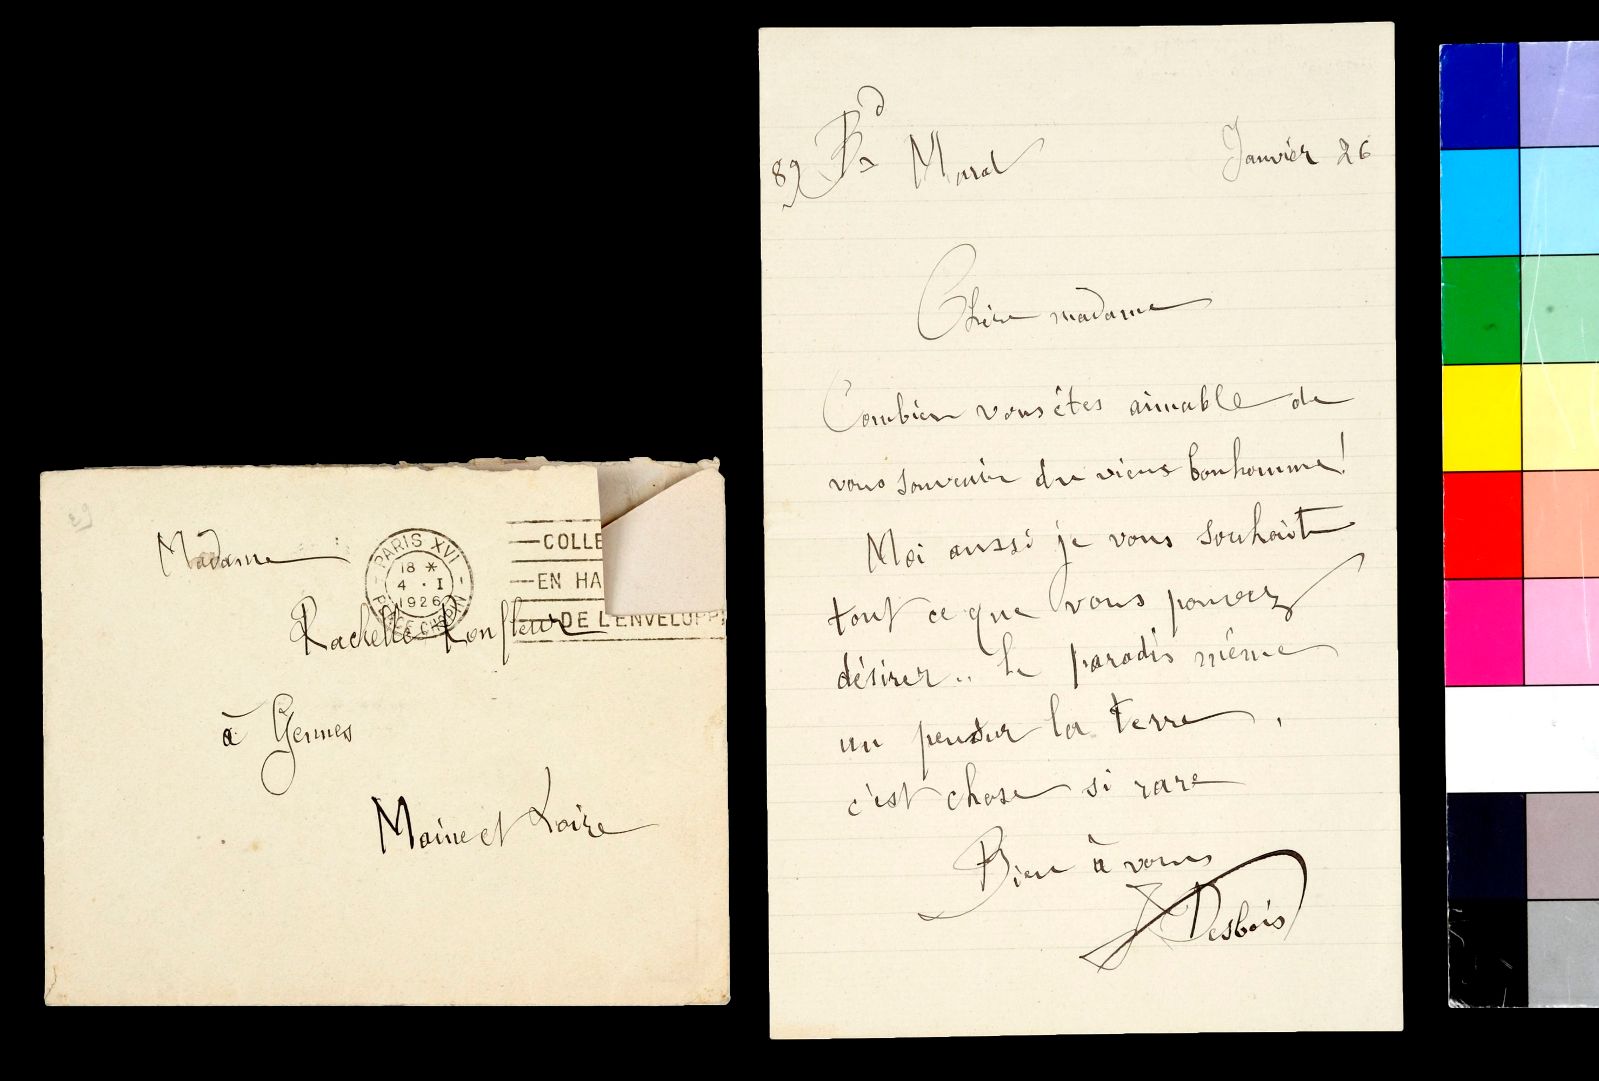 Madame
Rachelle Ronfleur
à Gennes
Maine et Loire
PARIS XVI
18 *
4 · I
1926
PLACE CHOPIN
COLLE
EN HA
DE L'ENVELOPP
89 Bd Murat Janvier 26
Chère madame
Combien vous êtes aimable de
vous souvenir du vieux bonhomme!
Moi aussi je vous souhait
tout ce que vous pouvez
désirer.. le paradis même
un peu sur la terre,
c'est chose si rare
Bien à vous
J Desbois